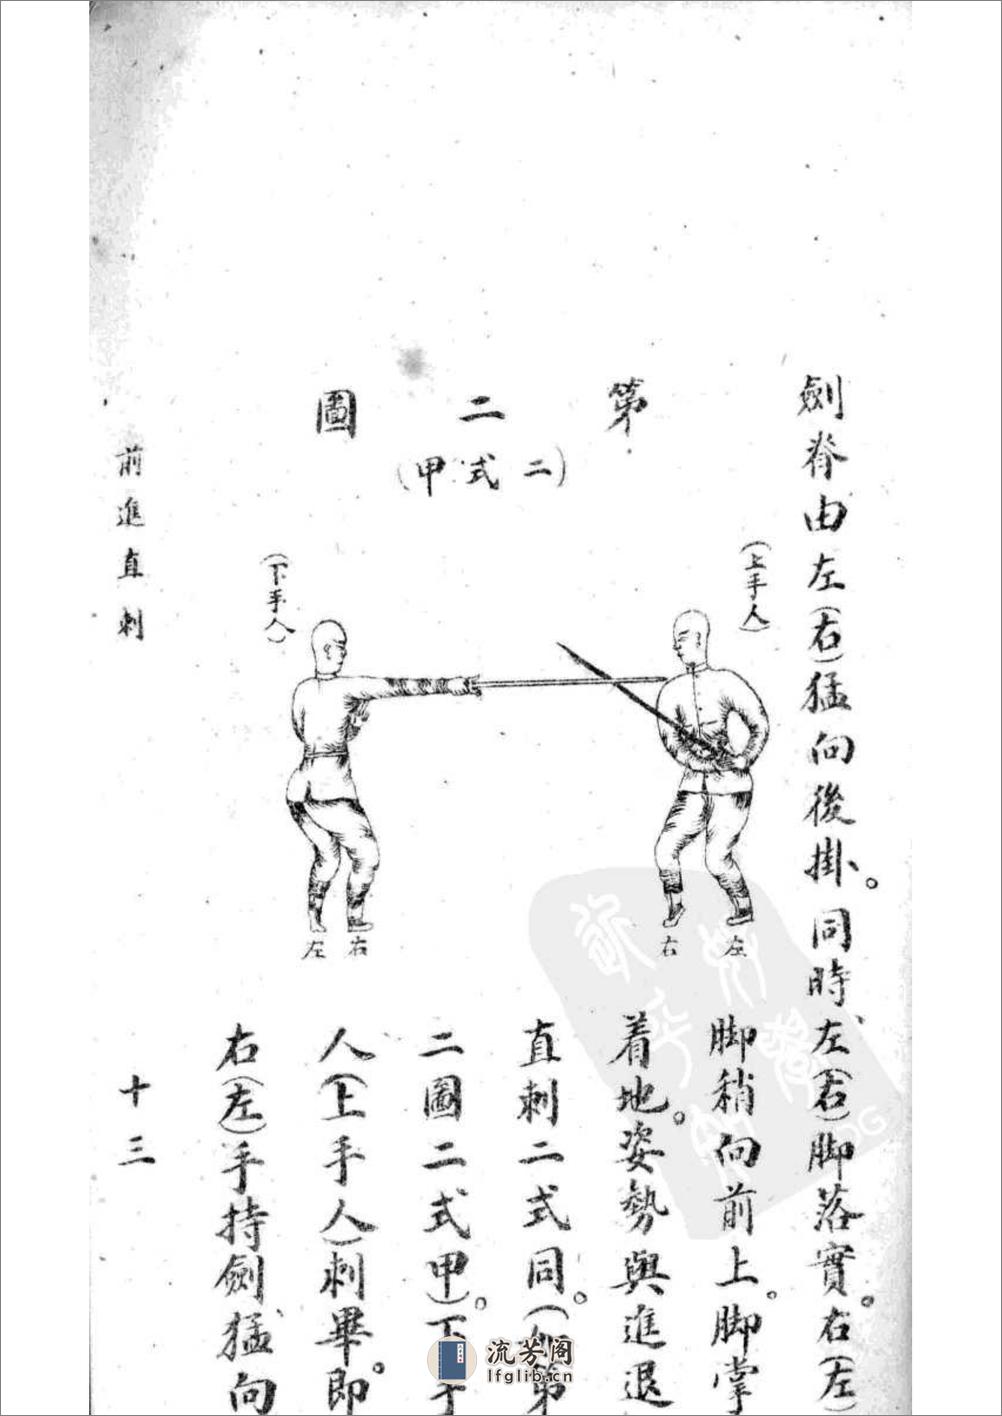 劍脊由左(右)猛向後掛。同時左(右)脚落實。右(左)
第二圖
(二式甲)
(上手人)
(下手人)
左 右
右 左
脚稍向前上。脚掌
着地。姿勢與進退
直刺二式同。(第
二圖二式甲)。下手
人(上手人)刺畢。即
右(左)手持劍猛向
前進直刺
十三
流芳阁
lfglib.cn